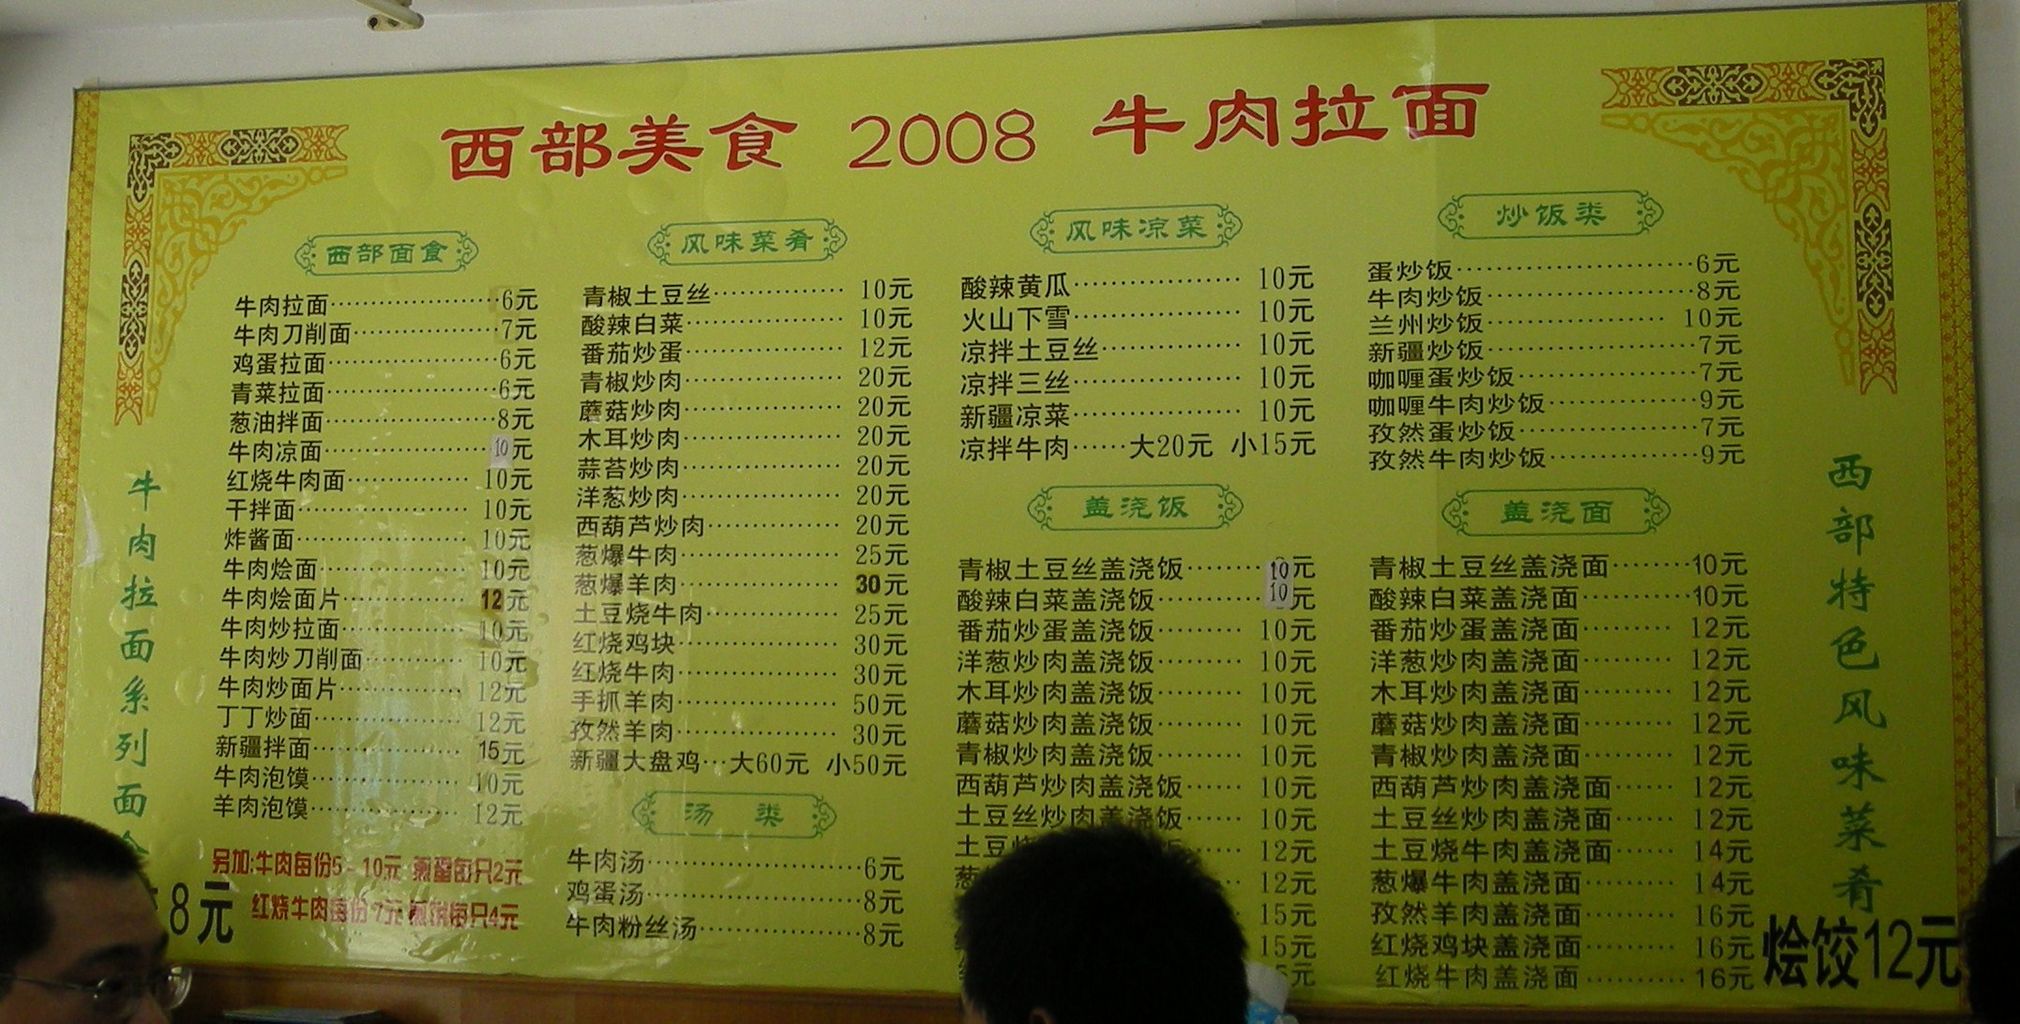 西部美食 2008 牛肉拉面
西部面食
牛肉拉面 6元
牛肉刀削面 7元
鸡蛋拉面 6元
青菜拉面 6元
葱油拌面 8元
牛肉凉面 10元
红烧牛肉面 10元
干拌面 10元
炸酱面 10元
牛肉烩面 10元
牛肉烩面片 12元
牛肉炒拉面 10元
牛肉炒刀削面 10元
牛肉炒面片 12元
丁丁炒面 12元
新疆拌面 15元
牛肉泡馍 10元
羊肉泡馍 12元
另加:牛肉每份5-10元 煎蛋每只2元
红烧牛肉每份7元 每只4元
风味菜肴
青椒土豆丝 10元
酸辣白菜 10元
番茄炒蛋 12元
青椒炒肉 20元
蘑菇炒肉 20元
木耳炒肉 20元
蒜苔炒肉 20元
洋葱炒肉 20元
西葫芦炒肉 20元
葱爆牛肉 25元
葱爆羊肉 30元
土豆烧牛肉 25元
红烧鸡块 30元
红烧牛肉 30元
手抓羊肉 50元
孜然羊肉 30元
新疆大盘鸡 大60元 小50元
汤 类
牛肉汤 6元
鸡蛋汤 8元
牛肉粉丝汤 8元
风味凉菜
酸辣黄瓜 10元
火山下雪 10元
凉拌土豆丝 10元
凉拌三丝 10元
新疆凉菜 10元
凉拌牛肉 大20元 小15元
盖浇饭
青椒土豆丝盖浇饭 10元
酸辣白菜盖浇饭 10元
番茄炒蛋盖浇饭 10元
洋葱炒肉盖浇饭 10元
木耳炒肉盖浇饭 10元
蘑菇炒肉盖浇饭 10元
青椒炒肉盖浇饭 10元
西葫芦炒肉盖浇饭 10元
土豆丝炒肉盖浇饭 10元
土豆 12元
葱 12元
15元
15元
5元
炒饭类
蛋炒饭 6元
牛肉炒饭 8元
兰州炒饭 10元
新疆炒饭 7元
咖喱蛋炒饭 7元
咖喱牛肉炒饭 9元
孜然蛋炒饭 7元
孜然牛肉炒饭 9元
盖浇面
青椒土豆丝盖浇面 10元
酸辣白菜盖浇面 10元
番茄炒蛋盖浇面 12元
洋葱炒肉盖浇面 12元
木耳炒肉盖浇面 12元
蘑菇炒肉盖浇面 12元
青椒炒肉盖浇面 12元
西葫芦炒肉盖浇面 12元
土豆丝炒肉盖浇面 12元
土豆烧牛肉盖浇面 14元
葱爆牛肉盖浇面 14元
孜然羊肉盖浇面 16元
红烧鸡块盖浇面 16元
红烧牛肉盖浇面 16元
牛肉拉面系列面
8元
西部特色风味菜肴
烩饺12元